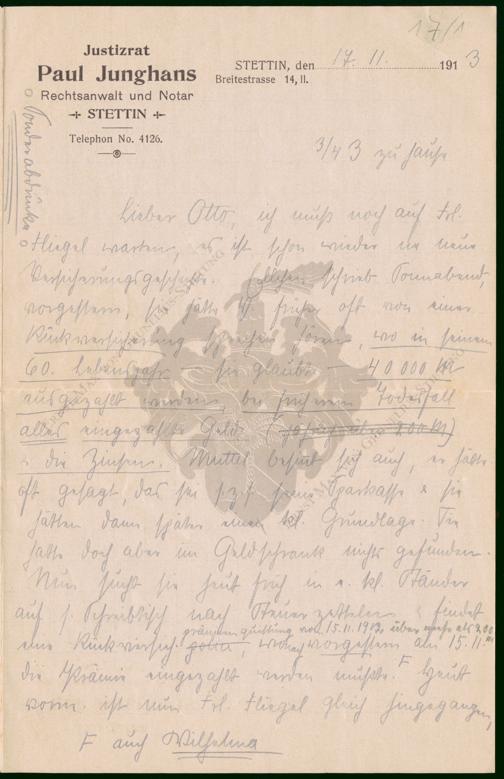 17/1
Justizrat
Paul Junghans
Rechtsanwalt und Notar
STETTIN
Telephon No. 4126.
STETTIN, den 17. 11. 1913
Breitestrasse 14, II.
Sonderabdrucke
3/4 3 zu Hause
Lieber Otto, ich muß noch auf Frl.
Fliegel warten, es ist schon wieder ne neue
Versicherungsgeschichte. schrieb Sonnabend,
vorgestern, sie hätte früher oft von einer
Rückversicherung sprechen hören, wo in seinem
60. Lebensjahr – sie glaube – 40 000 M
ausgezahlt werden bei früherem Todesfall
alles eingezahlte Geld
& die Zinsen. Mutter besinnt sich auch, er hätte
oft gesagt, das sei s. Sparkasse & sie
hätten dann später eine kl. Grundlage. Sie
hatte doch aber im Geldschrank nichts gefunden.
Nun sucht sie heut früh in e. kl. Ständer
auf s. Schreibtisch nach Steuerzetteln & findet
prämienquittung von 15.11.1912, über mehr als 200 M
eine Rückversich. wonach vorgestern am 15.11.
die Prämie eingezahlt werden mußte. F Heut
vorm. ist nun Frl. Fliegel gleich hingegangen,
F auch Wilhelma